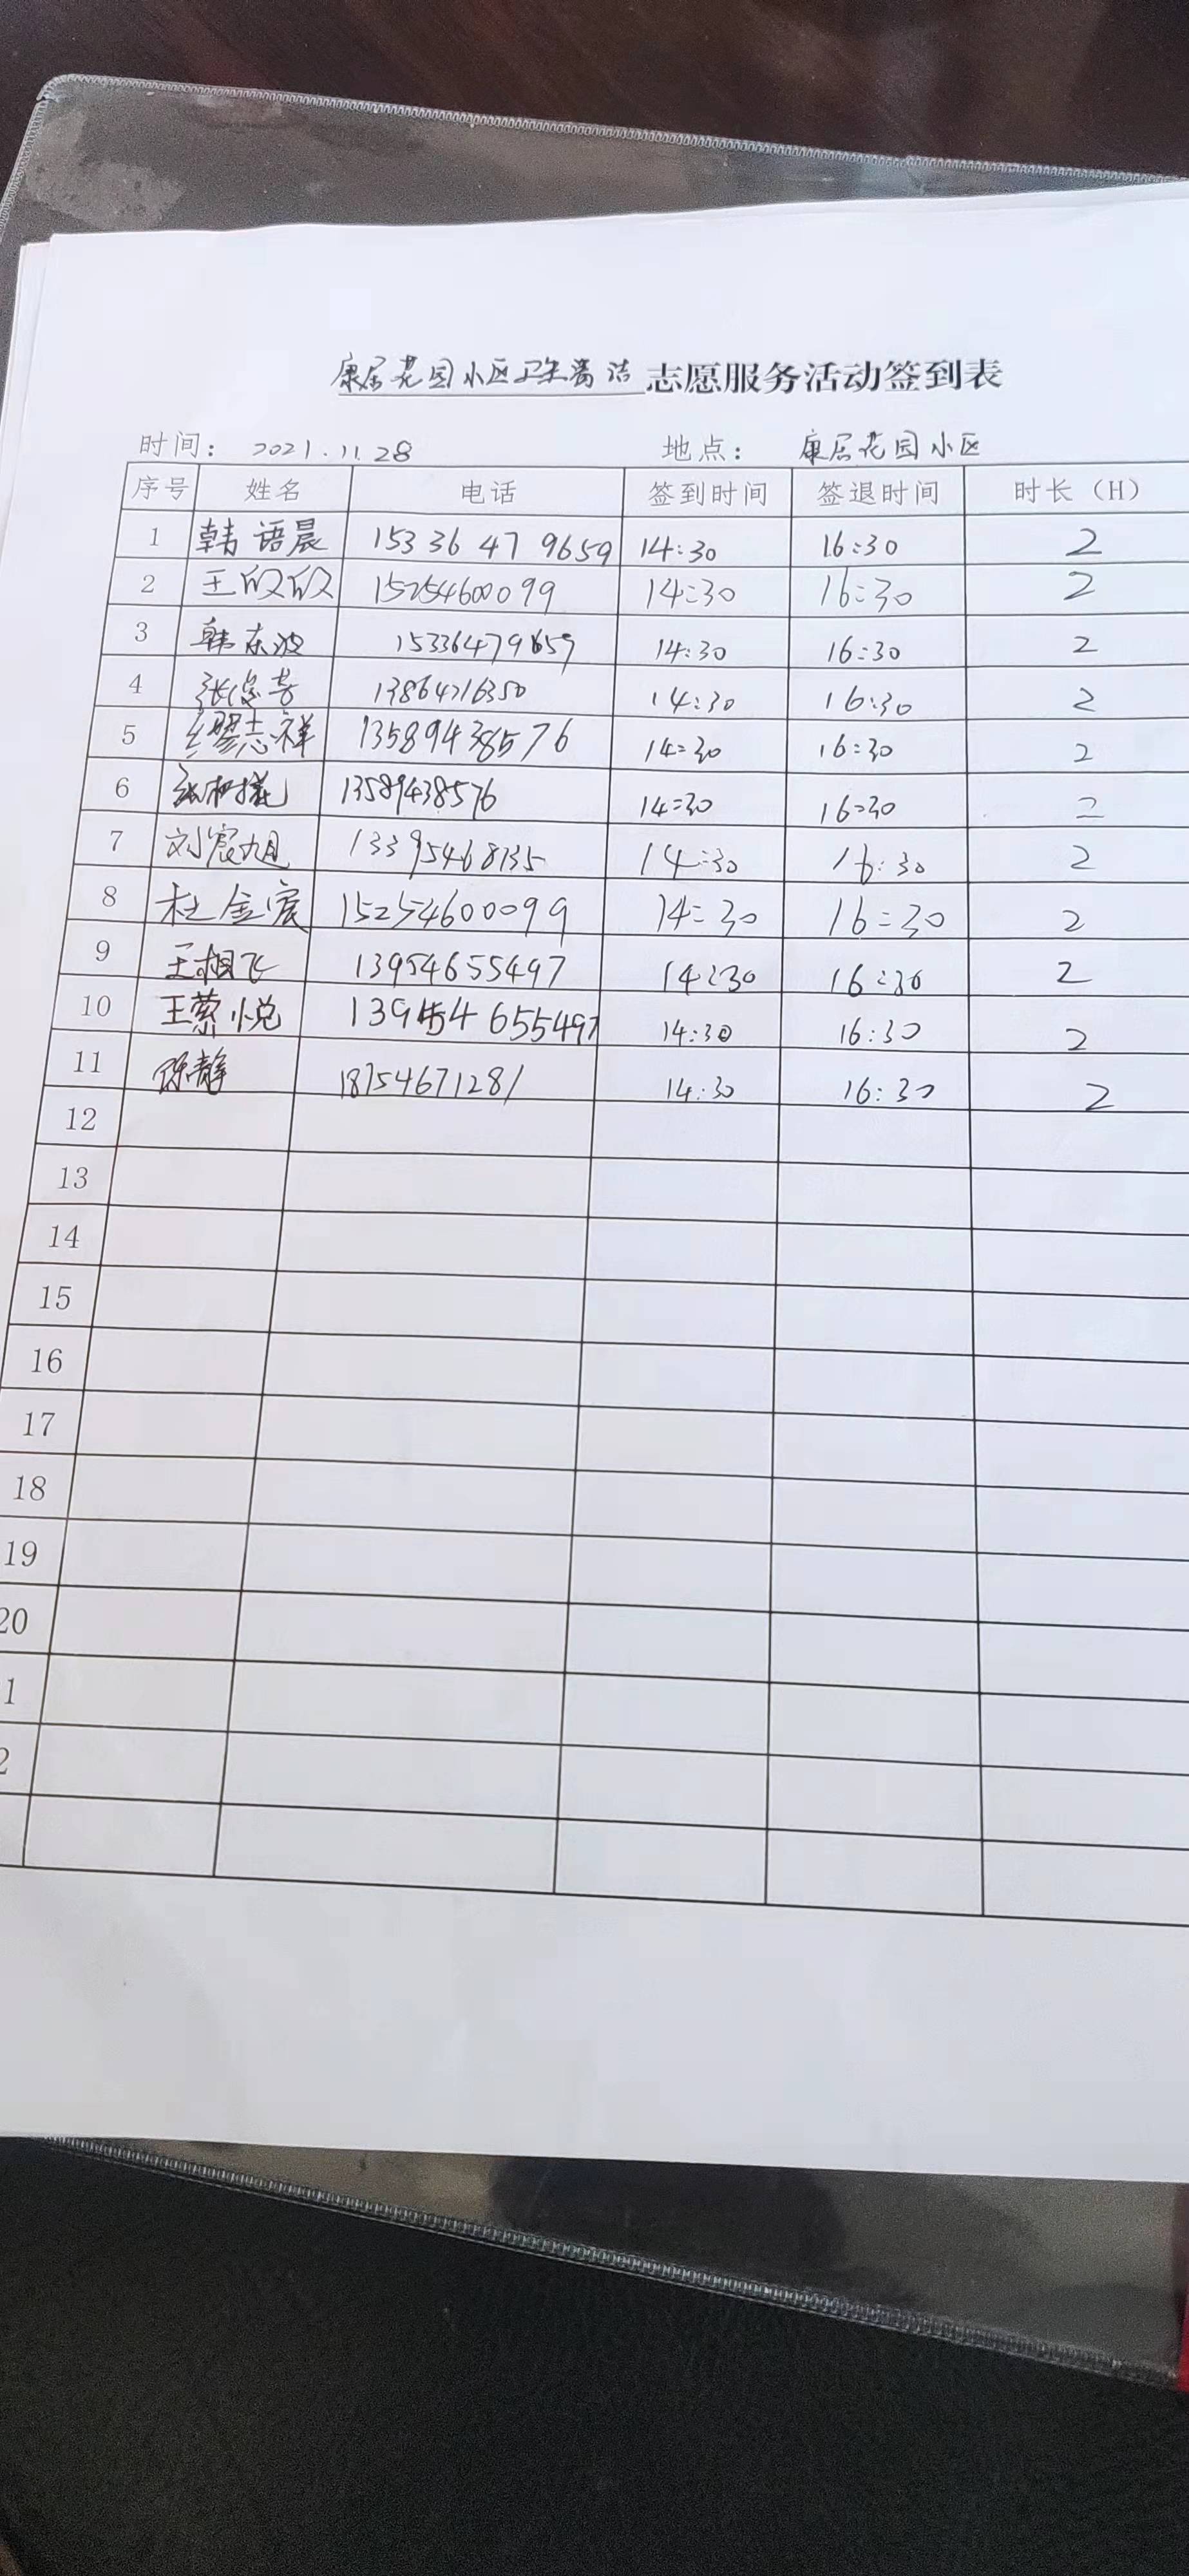 康居花园小区卫生清洁志愿服务活动签到表
时间: 2021.11.28 地点: 康居花园小区
序号 姓名 电话 签到时间 签退时间 时长(H)
1 韩语晨 15336479659 14:30 16:30 2
2 王 15254600099 14:30 16:30 2
3 韩东波 15336479659 14:30 16:30 2
4 张 13864716350 14:30 16:30 2
5 缪志祥 13589438576 14:30 16:30 2
6 13589438576 14:30 16:30 2
7 刘宸旭 13395468135 14:30 16:30 2
8 杜金宸 15254600099 14:30 16:30 2
9 王相飞 13954655497 14:30 16:30 2
10 王萦悦 13954655497 14:30 16:30 2
11 陈静 18754671281 14:30 16:30 2
12
13
14
15
16
17
18
19
20
1
2